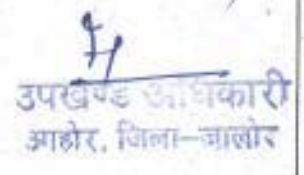 उपखण्ड अधिकारी
आहोर, जिला-जालोर